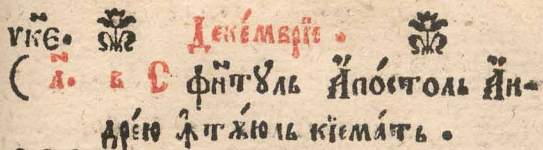 ꙋкⷩ҇є. Деке́мврїе .
( л҃. в Сфн҃тꙋль А҆по́столь А҆н-
дре́ю ꙟ҆тѫ́юль кїема́ть .